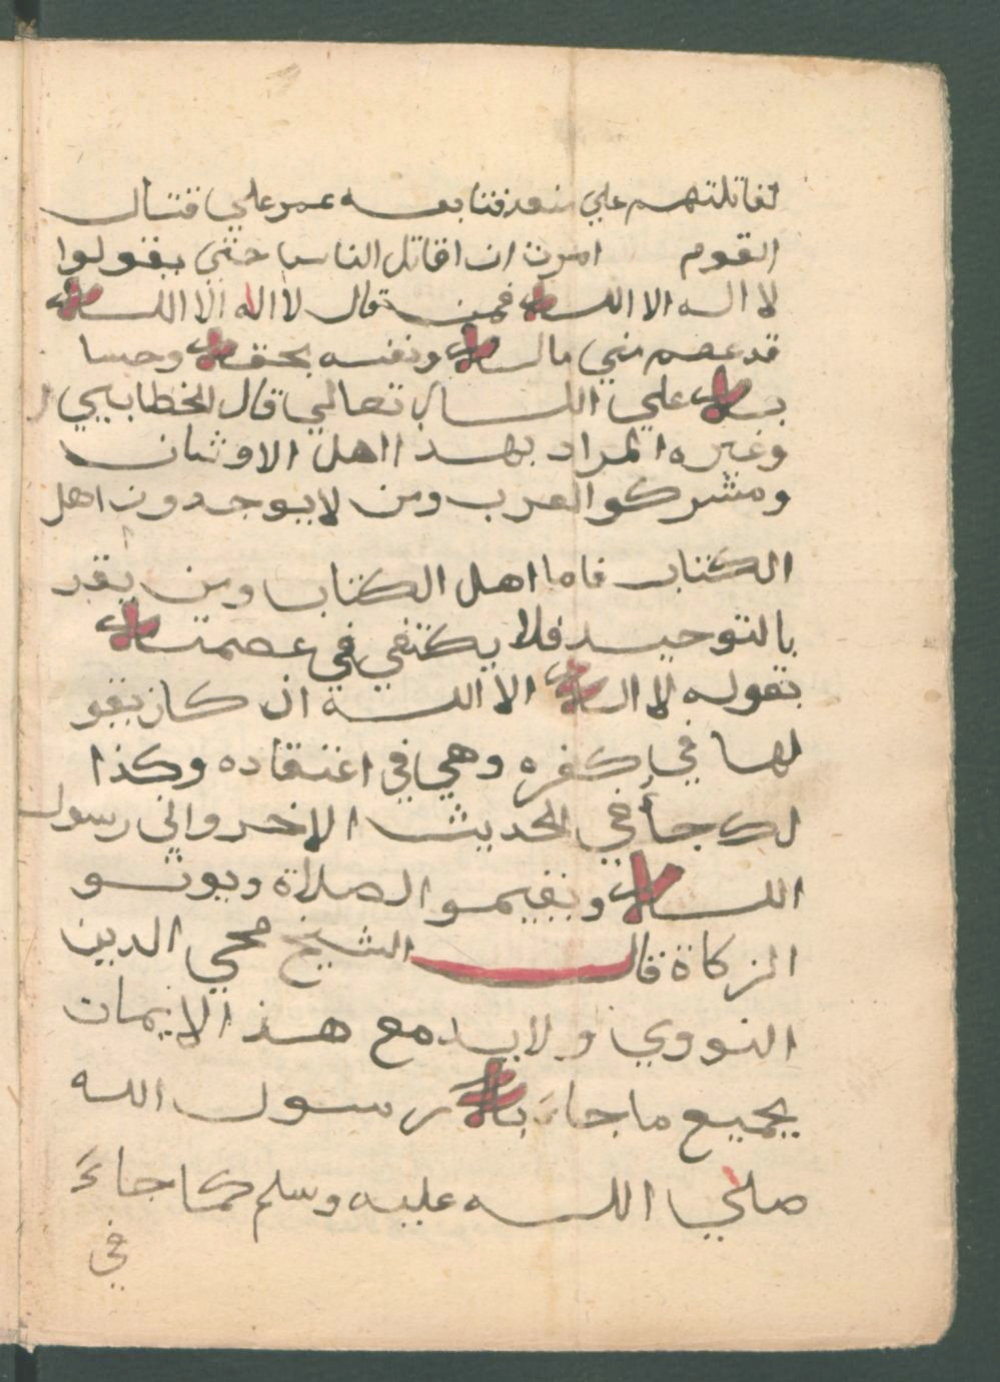 لقاتلتهم علي منعه فتابعه عمر علي قتال
القوم امرت ان اقاتل الناس حتي يقولوا
لا اله الا الله فمن قال لا اله الا الله
قد عصم مني ماله ونفسه بحقه وحسا
به علي الله تعالي قال الخطابيي
وغيره المراد بهذا اهل الاوثان
ومشركوا العرب ومن لا يوحدون اهل
الكتاب فاما اهل الكتاب ومن يقر
بالتوحيد فلا يكتفي في عصمته
بقوله لا اله الا الله ان كان يقو
لها في كفره وهي في اعتقاده وكذا
لك جأ في الحديث الاخر واني رسول
الله ويقيمو الصلاة ويوتو
الزكاة قال الشيخ محي الدين
النووي ولا بد مع هذ الايمان
بجميع ما جاء به رسول الله
صلي الله عليه وسلم كما جاءَ
في